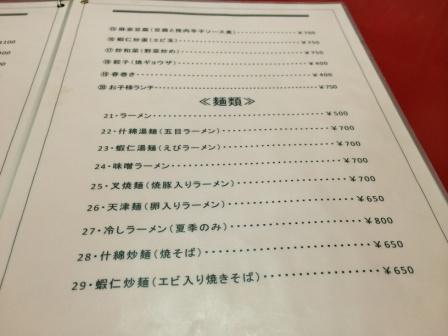 1100
⑮ 麻婆豆腐(豆腐と挽肉辛子ソース煮)・・・・・・・・・・・・¥700
⑯ 蝦仁炒蛋(エビ玉)・・・・・・・・・・・・・・・・・・・・¥750
⑰ 炒和菜(野菜炒め)・・・・・・・・・・・・・・・・・・・・¥750
⑱ 餃子(焼ギョウザ)・・・・・・・・・・・・・・・・・・・・¥400
⑲ 春巻き・・・・・・・・・・・・・・・・・・・・・・・・・・¥400
⑳ お子様ランチ・・・・・・・・・・・・・・・・・・・・・・・¥750
≪麺類≫
21・ラーメン・・・・・・・・・・・・・・・・・・・・・・・・¥500
22・什綿湯麺(五目ラーメン)・・・・・・・・・・・・・・・・・¥700
23・蝦仁湯麺(えびラーメン)・・・・・・・・・・・・・・・・・¥700
24・味噌ラーメン・・・・・・・・・・・・・・・・・・・・・・¥700
25・叉焼麺(焼豚入りラーメン)・・・・・・・・・・・・・・・・¥700
26・天津麺(卵入りラーメン)・・・・・・・・・・・・・・・・・¥650
27・冷しラーメン(夏季のみ)・・・・・・・・・・・・・・・・・¥800
28・什綿炒麺(焼そば)・・・・・・・・・・・・・・・・・・・・¥650
29・蝦仁炒麺(エビ入り焼きそば)・・・・・・・・・・・・・・・¥650